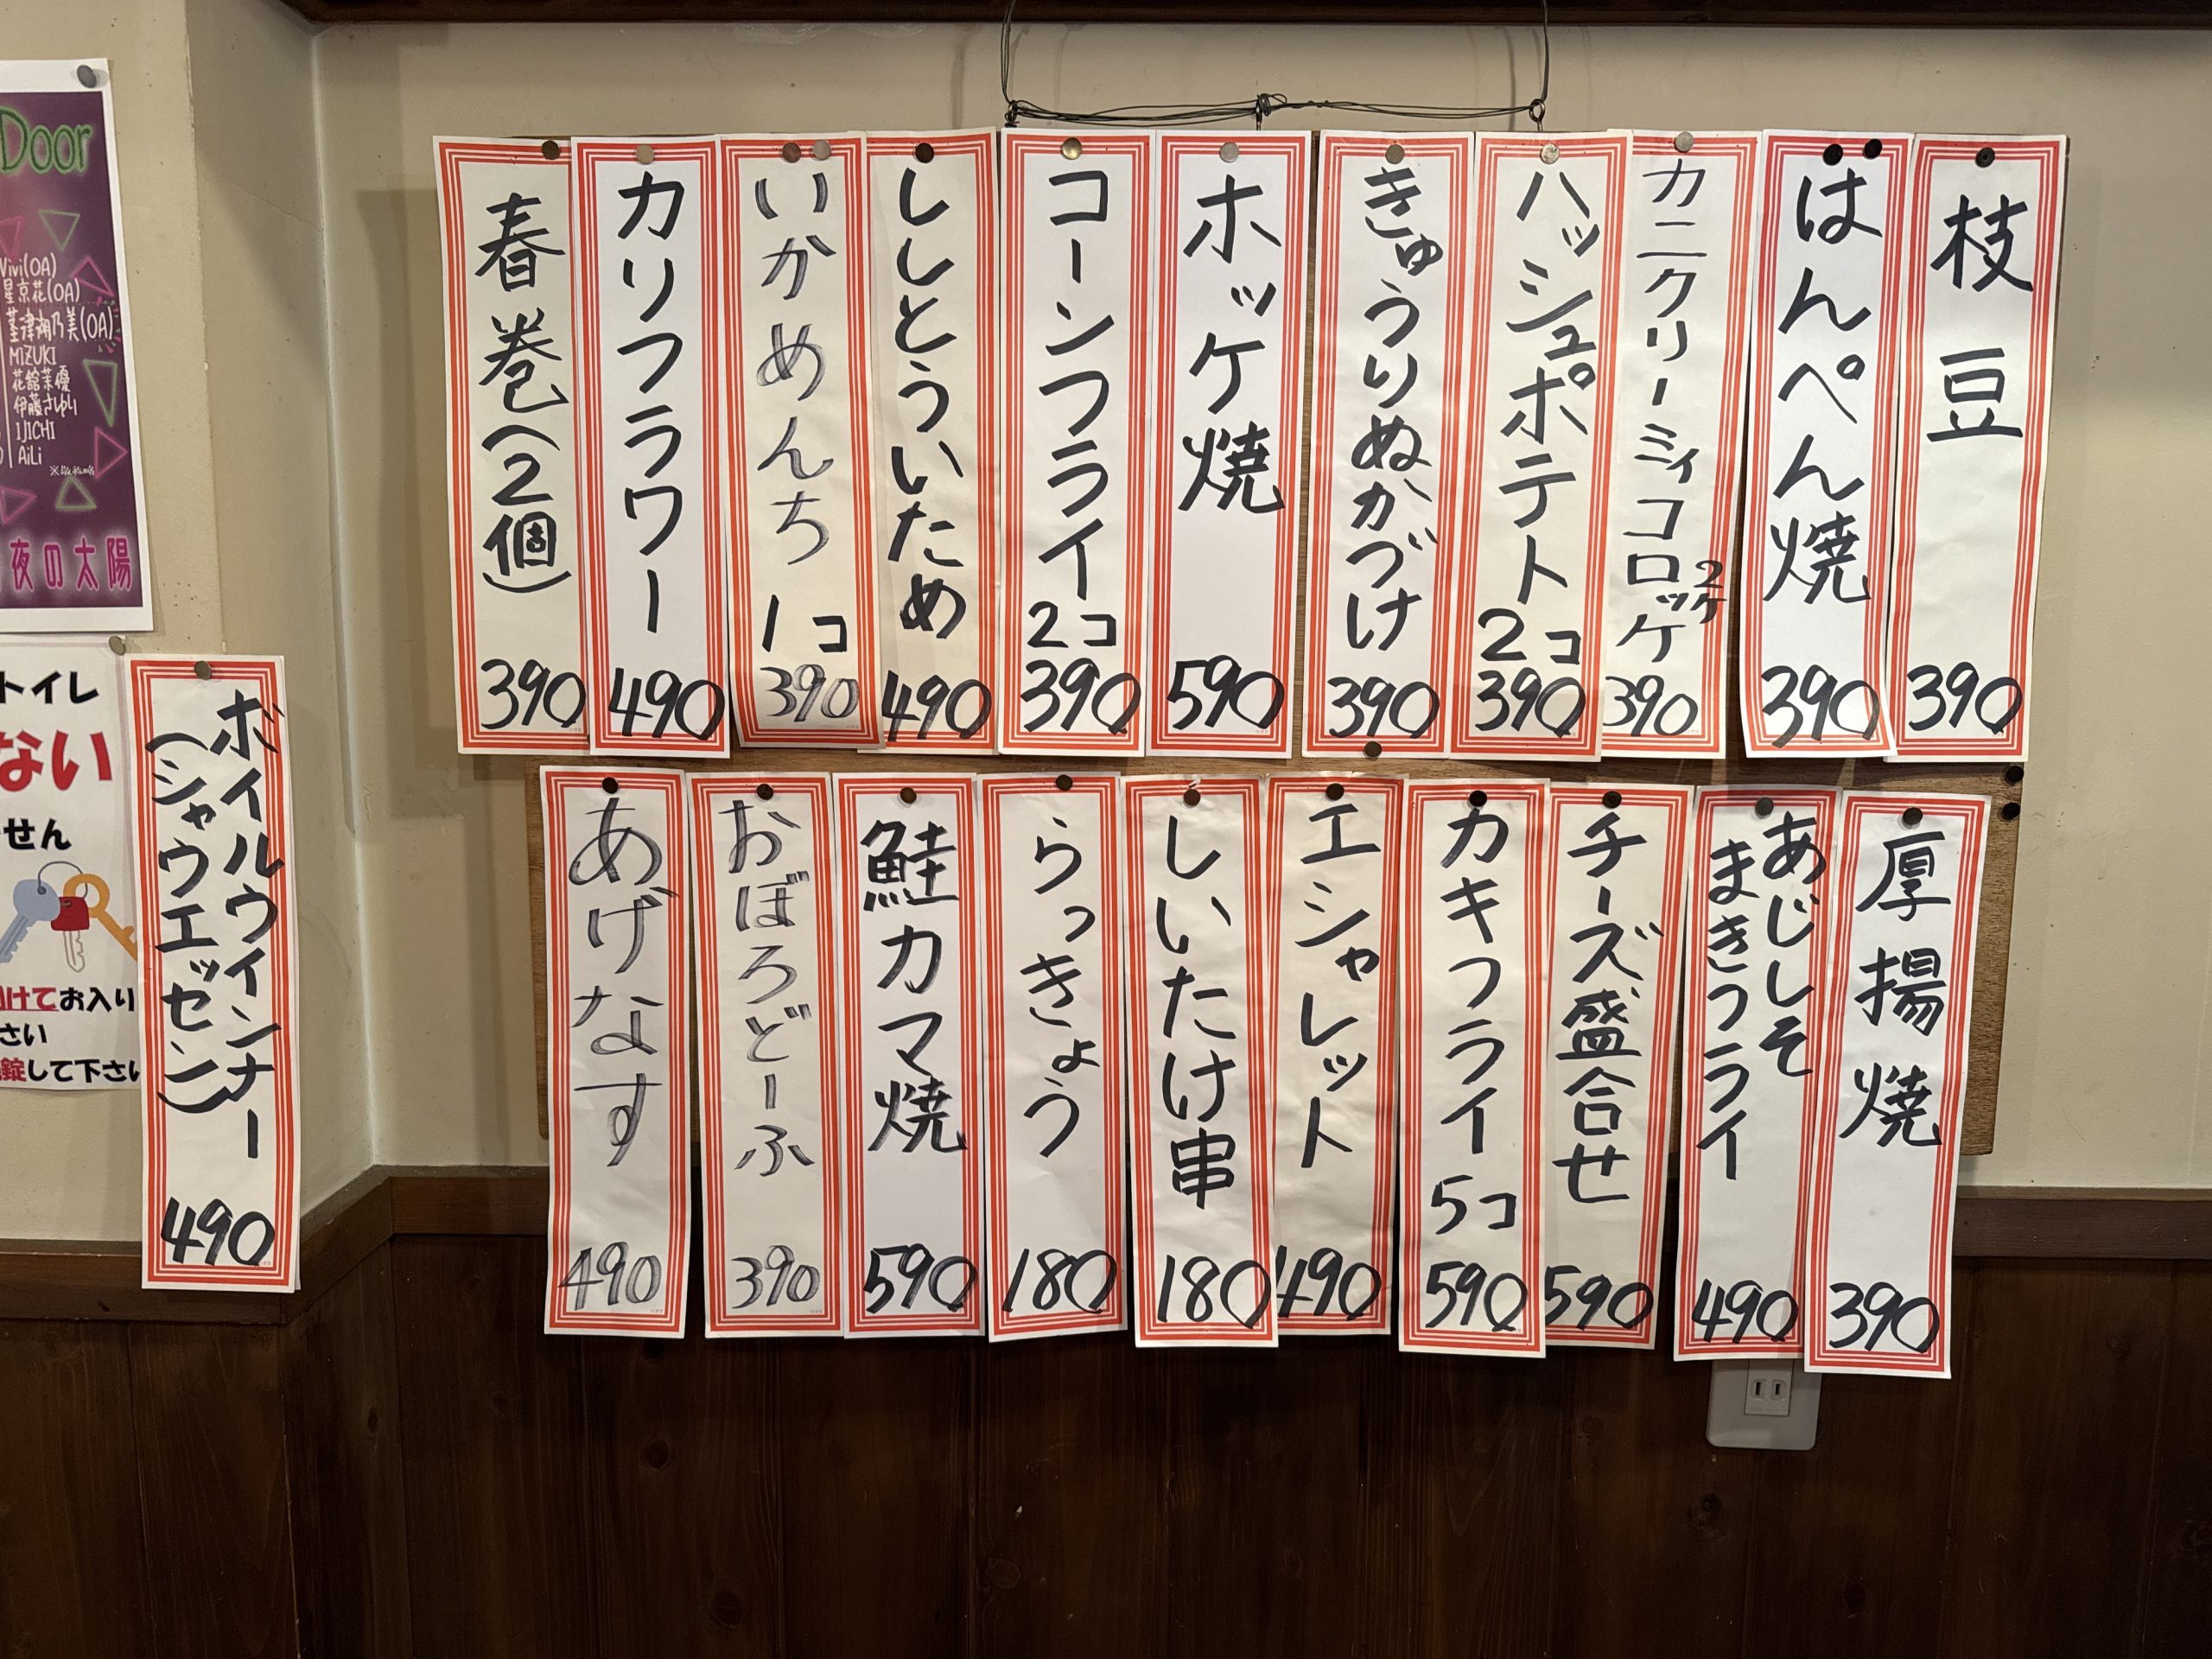 枝豆
390
はんぺん焼
390
カニクリーミィコロッケ
2ケ
390
ハッシュポテト
2コ
390
きゅうりぬかづけ
390
ホッケ焼
590
コーンフライ
2コ
390
ししとういため
490
いかめんち
1コ
390
カリフラワー
490
春巻(2個)
390
厚揚焼
390
あじしそ
まきフライ
490
チーズ盛合せ
590
カキフライ
5コ
590
エシャレット
490
しいたけ串
180
らっきょう
180
鮭カマ焼
590
おぼろどーふ
390
あげなす
490
ボイルウインナー
(シャウエッセン)
490
Door
Vivi(OA)
星京花(OA)
MIZUKI
IJICHI
AiLi
夜の太陽
トイレ
ない
せん
けてお入り
さい
錠して下さい